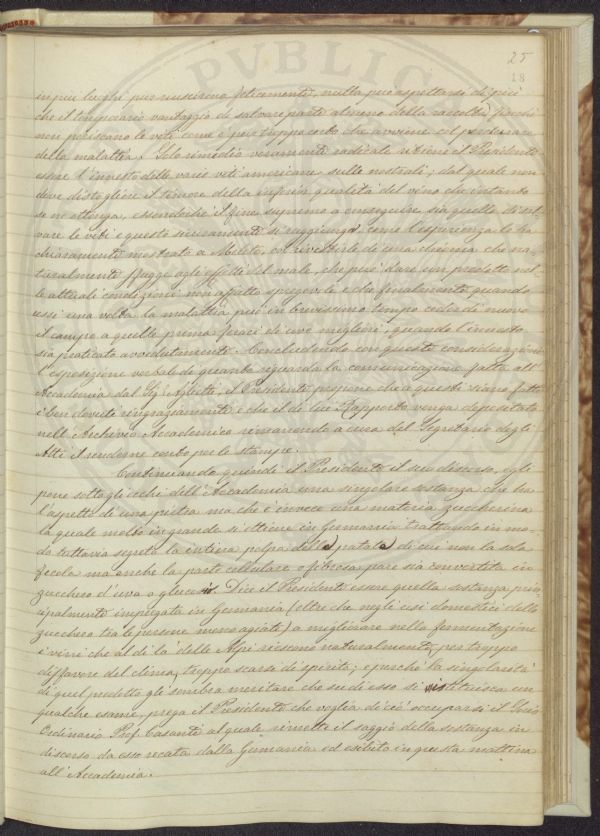 25
18
in più luoghi può riuscirne felicemente, nulla può aspettarsi di più
che il temporario vantaggio di salvare parte almeno della raccolta, finché
non periscano le viti come è pur troppo certo che avviene col perdurare
della malattia. Solo rimedio veramente radicale ritiene il Presidente
essere l'innesto delle varie viti americane sulle nostrali; dal quale non
deve distogliere il timore della inferior qualità del vino che intanto
se ne ottenga, essendoché il fine supremo a conseguire sia quello di sal-
vare le viti e questo sicuramente si raggiunga, come l'esperienza lo ha
chiaramente mostrato a Meleto, col rivestirle di una chioma che na-
turalmente fugge agli effetti del male, che può dare un prodotto nel-
le attuali condizioni non affatto spregevole e che finalmente quando
cessi una volta la malattia può in brevissimo tempo ceder di nuovo
il campo a quelle prima feraci di uve migliori, quando l'innesto
sia praticato avvedutamente. Concludendo con queste considerazioni
l'esposizione verbale di quanto riguarda la comunicazione fatta all'
Accademia dal Sig. il Presidente propone che a questi siano fatti
i ben dovuti ringraziamenti e che il di lui Rapporto venga depositato
nell'Archivio Accademico rimanendo a cura del Segretario degli
Atti il renderne conto per le stampe.
Continuando quindi il Presidente il suo discorso, egli
pone sottogli occhi dell'Accademia una singolare sostanza che ha
l'aspetto di una pietra ma che è invece una materia zuccherina
la quale molto in grande si ottiene in Germania trattando in mo-
do tuttavia segreto la intiera polpa delle patate di cui non la sola
fecola ma anche la parte cellulare o fibrosa pare sia convertita in
zucchero d'uva o glucosio. Dice il Presidente essere quella sostanza prin-
cipalmente impiegata in Germania (oltre che negli usi domestici dello
zucchero tra le persone meno agiate) a migliorare nella fermentazione
i vini che al di là delle Alpi riescono naturalmente, per troppo
disfavore del clima, troppo scarsi di spirito; e perché la singolarità
di quel prodotto gli sembra meritare che su di esso si istituisca un
qualche esame, prega il Presidente che voglia di ciò occuparsi il Socio
Ordinario Prof. Casanti al quale rimette il saggio della sostanza in
discorso da esso recata dalla Germania ed esibita in questa mattina
all'Accademia.